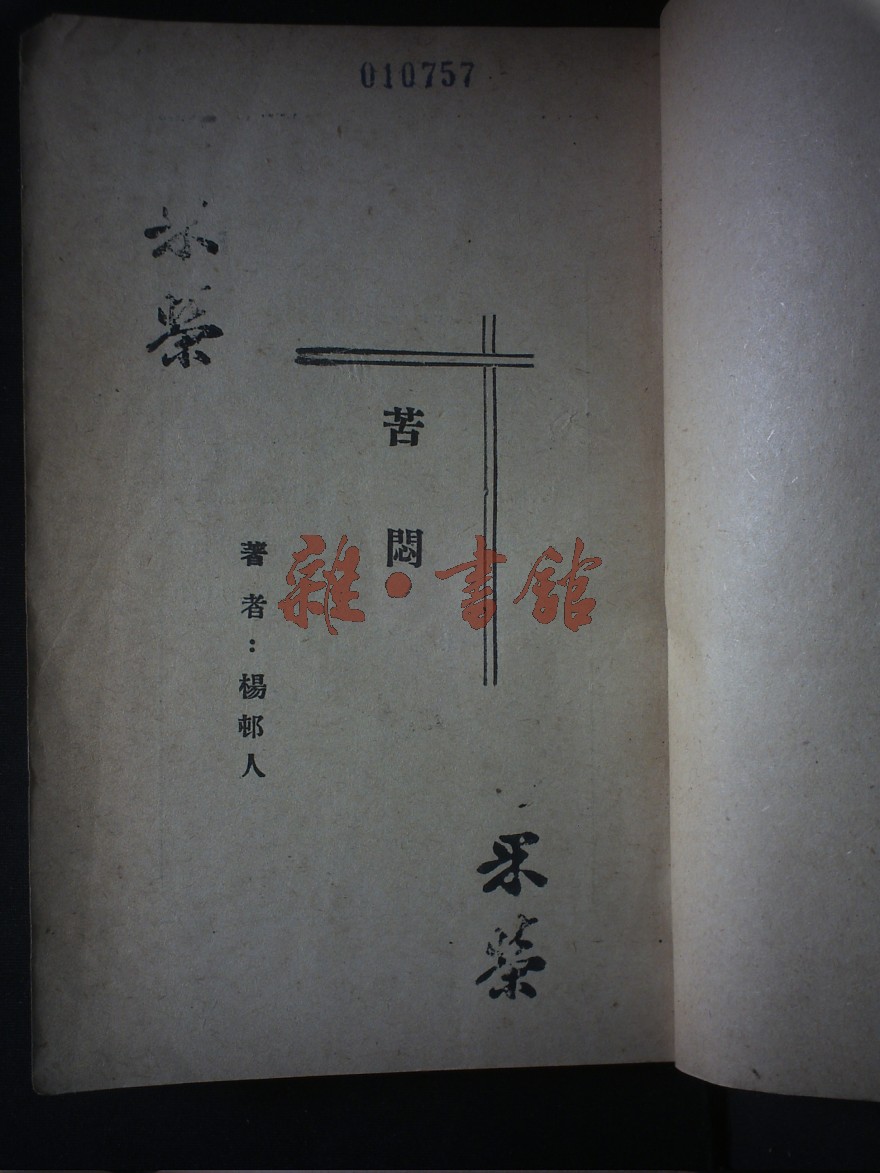 010757
苦悶
著者：楊邨人
雜·書館
采榮
采榮